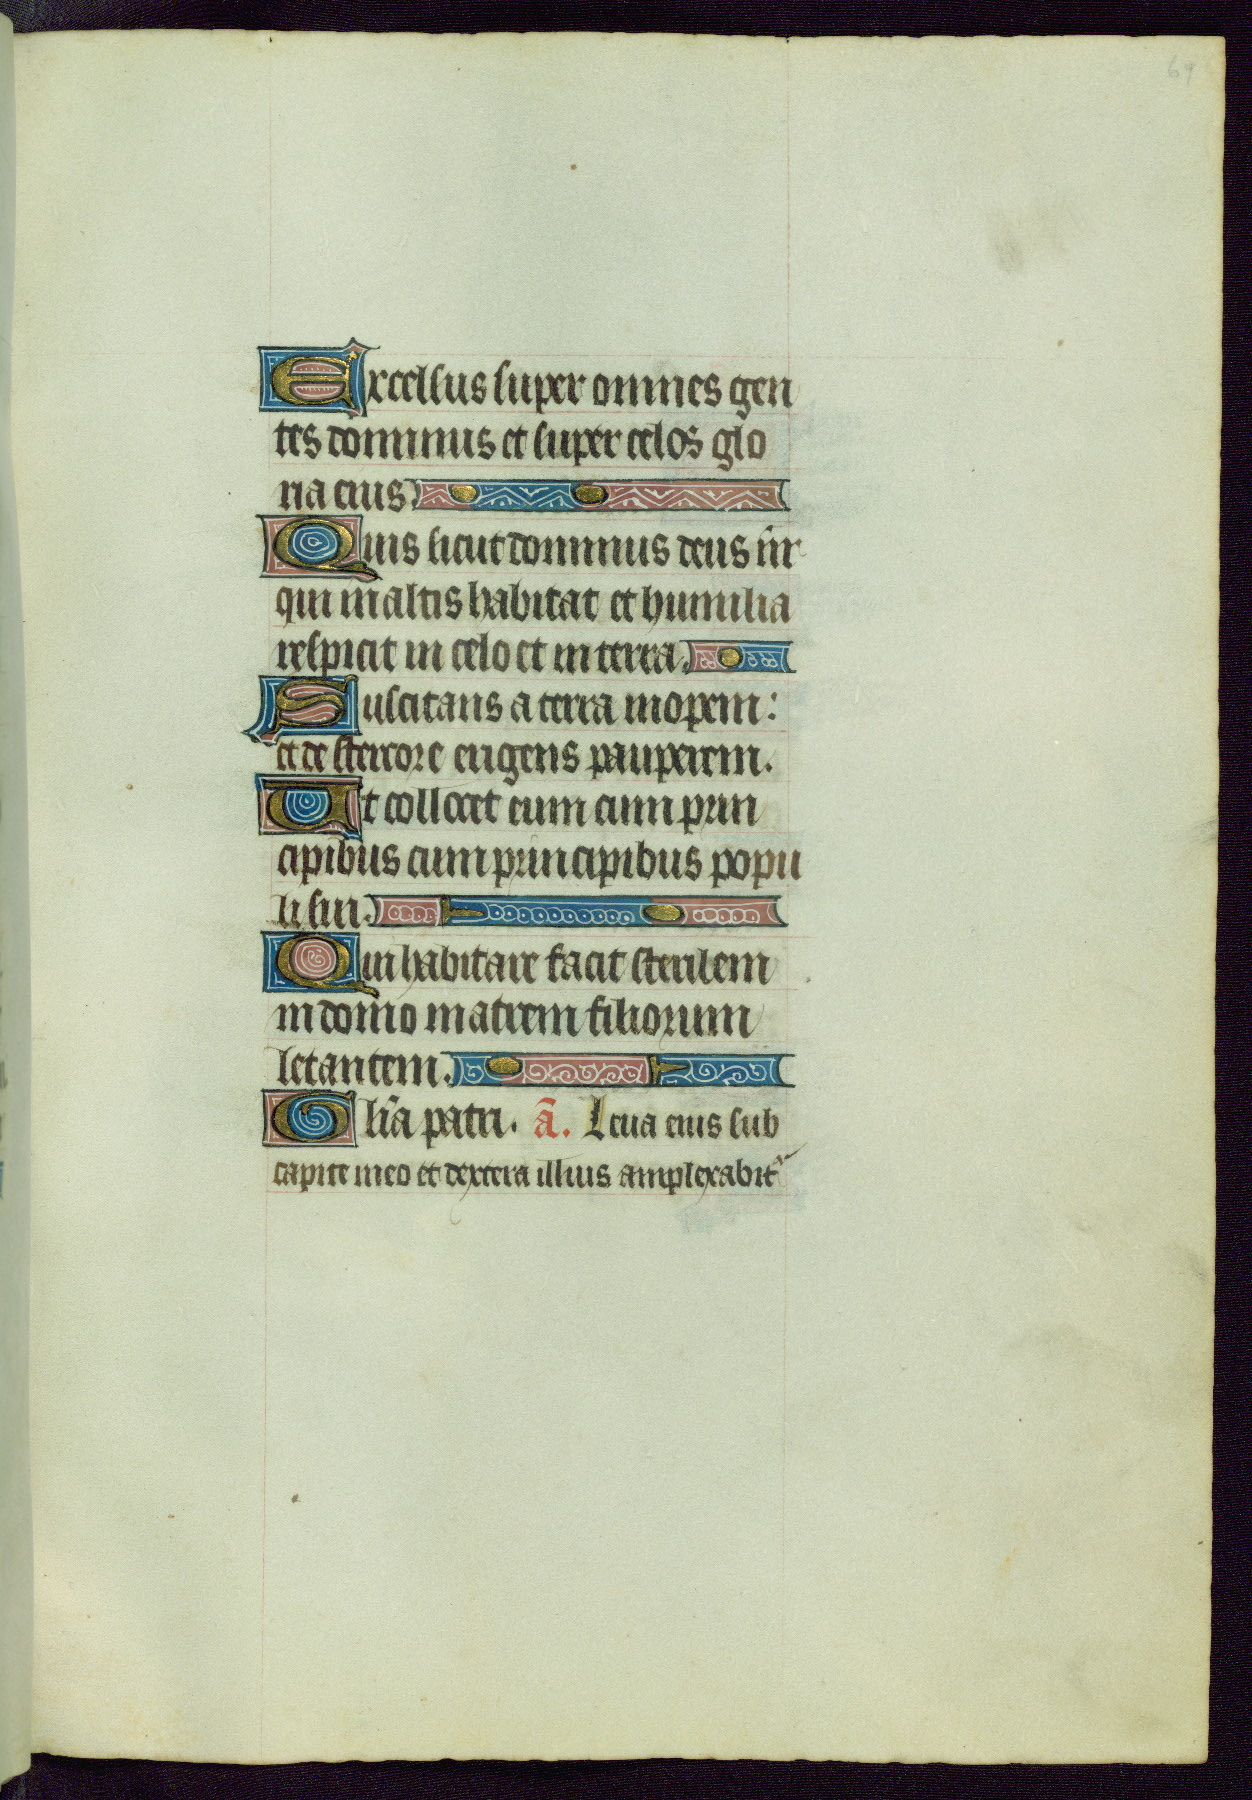 Excelsus super omnes gen
tes dominus et super celos glo
ria eius
Quis sicut dominus deus nr̄
qui in altis habitat et humilia
respicit in celo et in terra.
Suscitans a terra inopem:
et de stercore erigens pauperem.
Ut collocet eum cum prin
cipibus cum principibus popu
li sui.
Qui habitare facit sterilem
in domo matrem filiorum
letantem.
Glīa patri. ā. Leua eius sub
capite meo et dextera illius amplexabit᷑